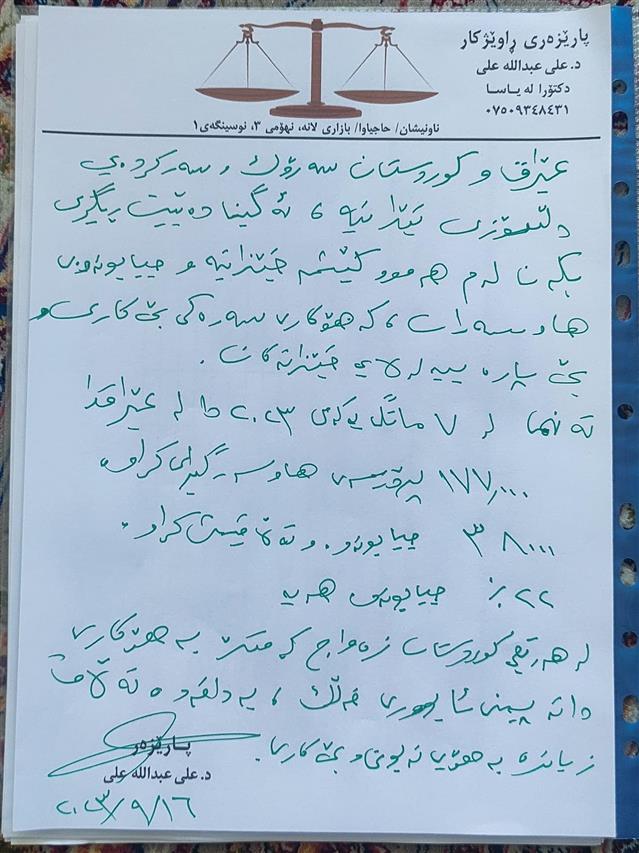 پارێزەری ڕاوێژکار
د. علی عبداللە علی
دکتۆرا لە یاسا
٠٧٥٠٩٣٤٨٤٣١
ناونیشان/ حاجیاوا/ بازاری لانە، نهۆمی ٣، نوسینگەی ١
عێراق و کوردستان سەرۆک و سەرکردەی
دڵسۆزی تێدا نیە ، ئەگینا دەبێت ڕێگری
بکەن لەم هەموو کێشە خێزانیە و جیابونەوەی
هاوسەران ، کە هۆکاری سەرەکی بێ کاری و
بێ پارە ییە لەلایەن خێزانەکان .
تەنها لە ٧ مانگی یەکەی ٢٠٢٣ دا لە عێراقدا
١٧٧,٠٠٠ پرۆسەی هاوسەرگیری کراوە
٣٨٠٠٠ جیابونەوە و تەڵاق تۆمار کراوە
٢٢٪ جیابونەوە هەیە
لە هەرێمی کوردستان زەواج کەمترە بە هۆکاری
دابەزینی ئابوری خەڵک ، بەڵام تەڵاق
زیاترە بە هۆی نەبونی و بێ کاری .
پارێزەر
د. علی عبداللە علی
٢٠٢٣/٩/١٦